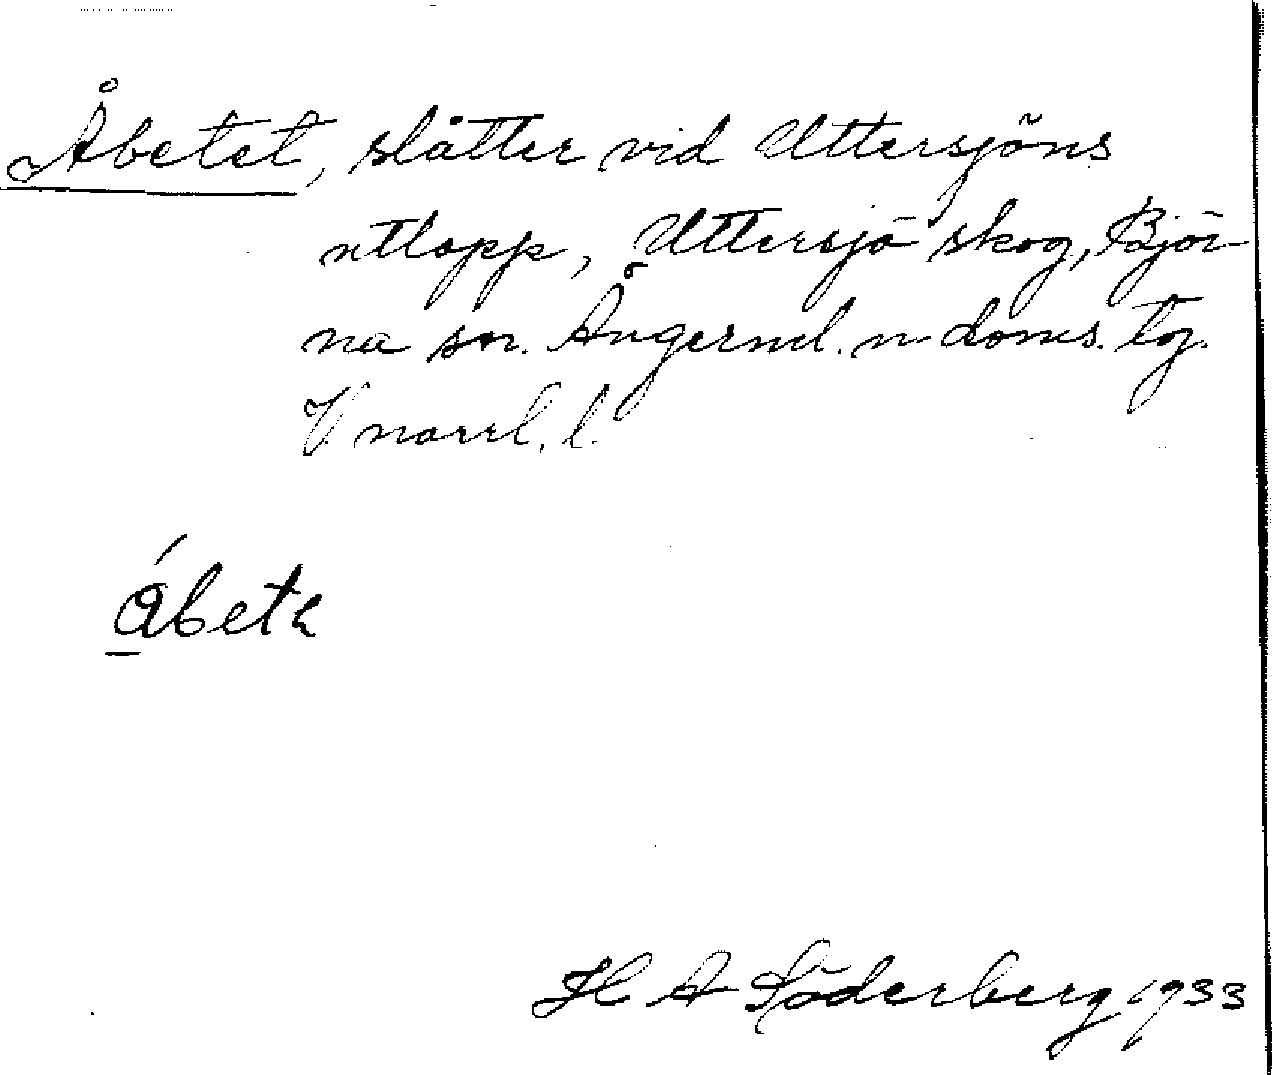 Åbetet, slåtter vid Uttersjöns
utlopp, Uttersjö skog, Björ-
na sn. Ångerml. n. doms. tg.
V. norrl. l.
ábetꝛ
H A Söderberg 1933